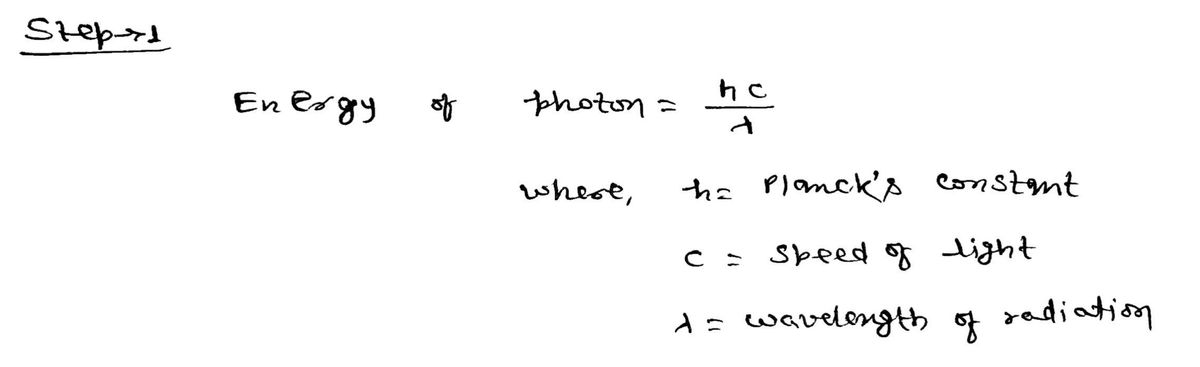 Step→1
Energy of photon = hc/λ
where, h = Planck's constant
c = speed of light
λ = wavelength of radiation